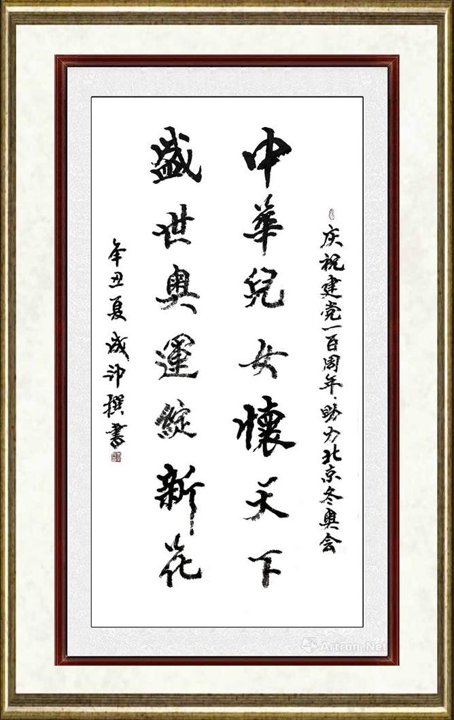 庆祝建党一百周年·助力北京冬奥会
中華兒女懷天下
盛世奥運綻新花
辛丑夏成印撰書
Artron.Net